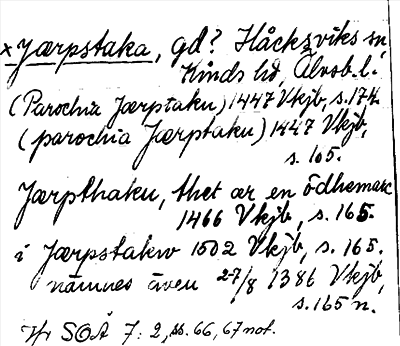 ×Jærpstaka, gd? Håcksviks sn,
Kinds hd, Älvsb. l.
(Parochia Jærptaku) 1447 Vkjb, s. 174.
(parochia Jærptaku) 1447 Vkjb,
s. 165.
Jærpthaku, thet ær en ödhemark
1466 Vkjb, s. 165.
i Jærpstakw 1502 Vkjb, s. 165.
nämnes även 27/8 1386 Vkjb,
s. 165 n.
SOÄ 7: 2, ss. 66, 67 not.